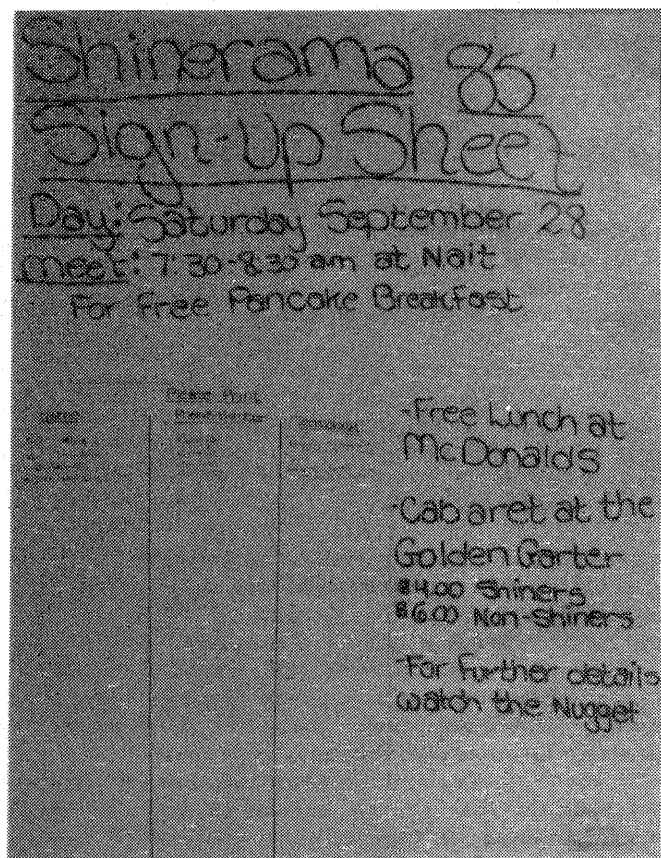 Shinerama 85'
Sign-Up Sheet
Day: Saturday September 28
Meet: 7:30-8:30 am at Nait
- For Free Pancake Breakfast
Please Print
-Free Lunch at
McDonalds
-Cabaret at the
Golden Garter
$4.00 Shiners
$6.00 Non-Shiners
-For further details
watch the Nugget